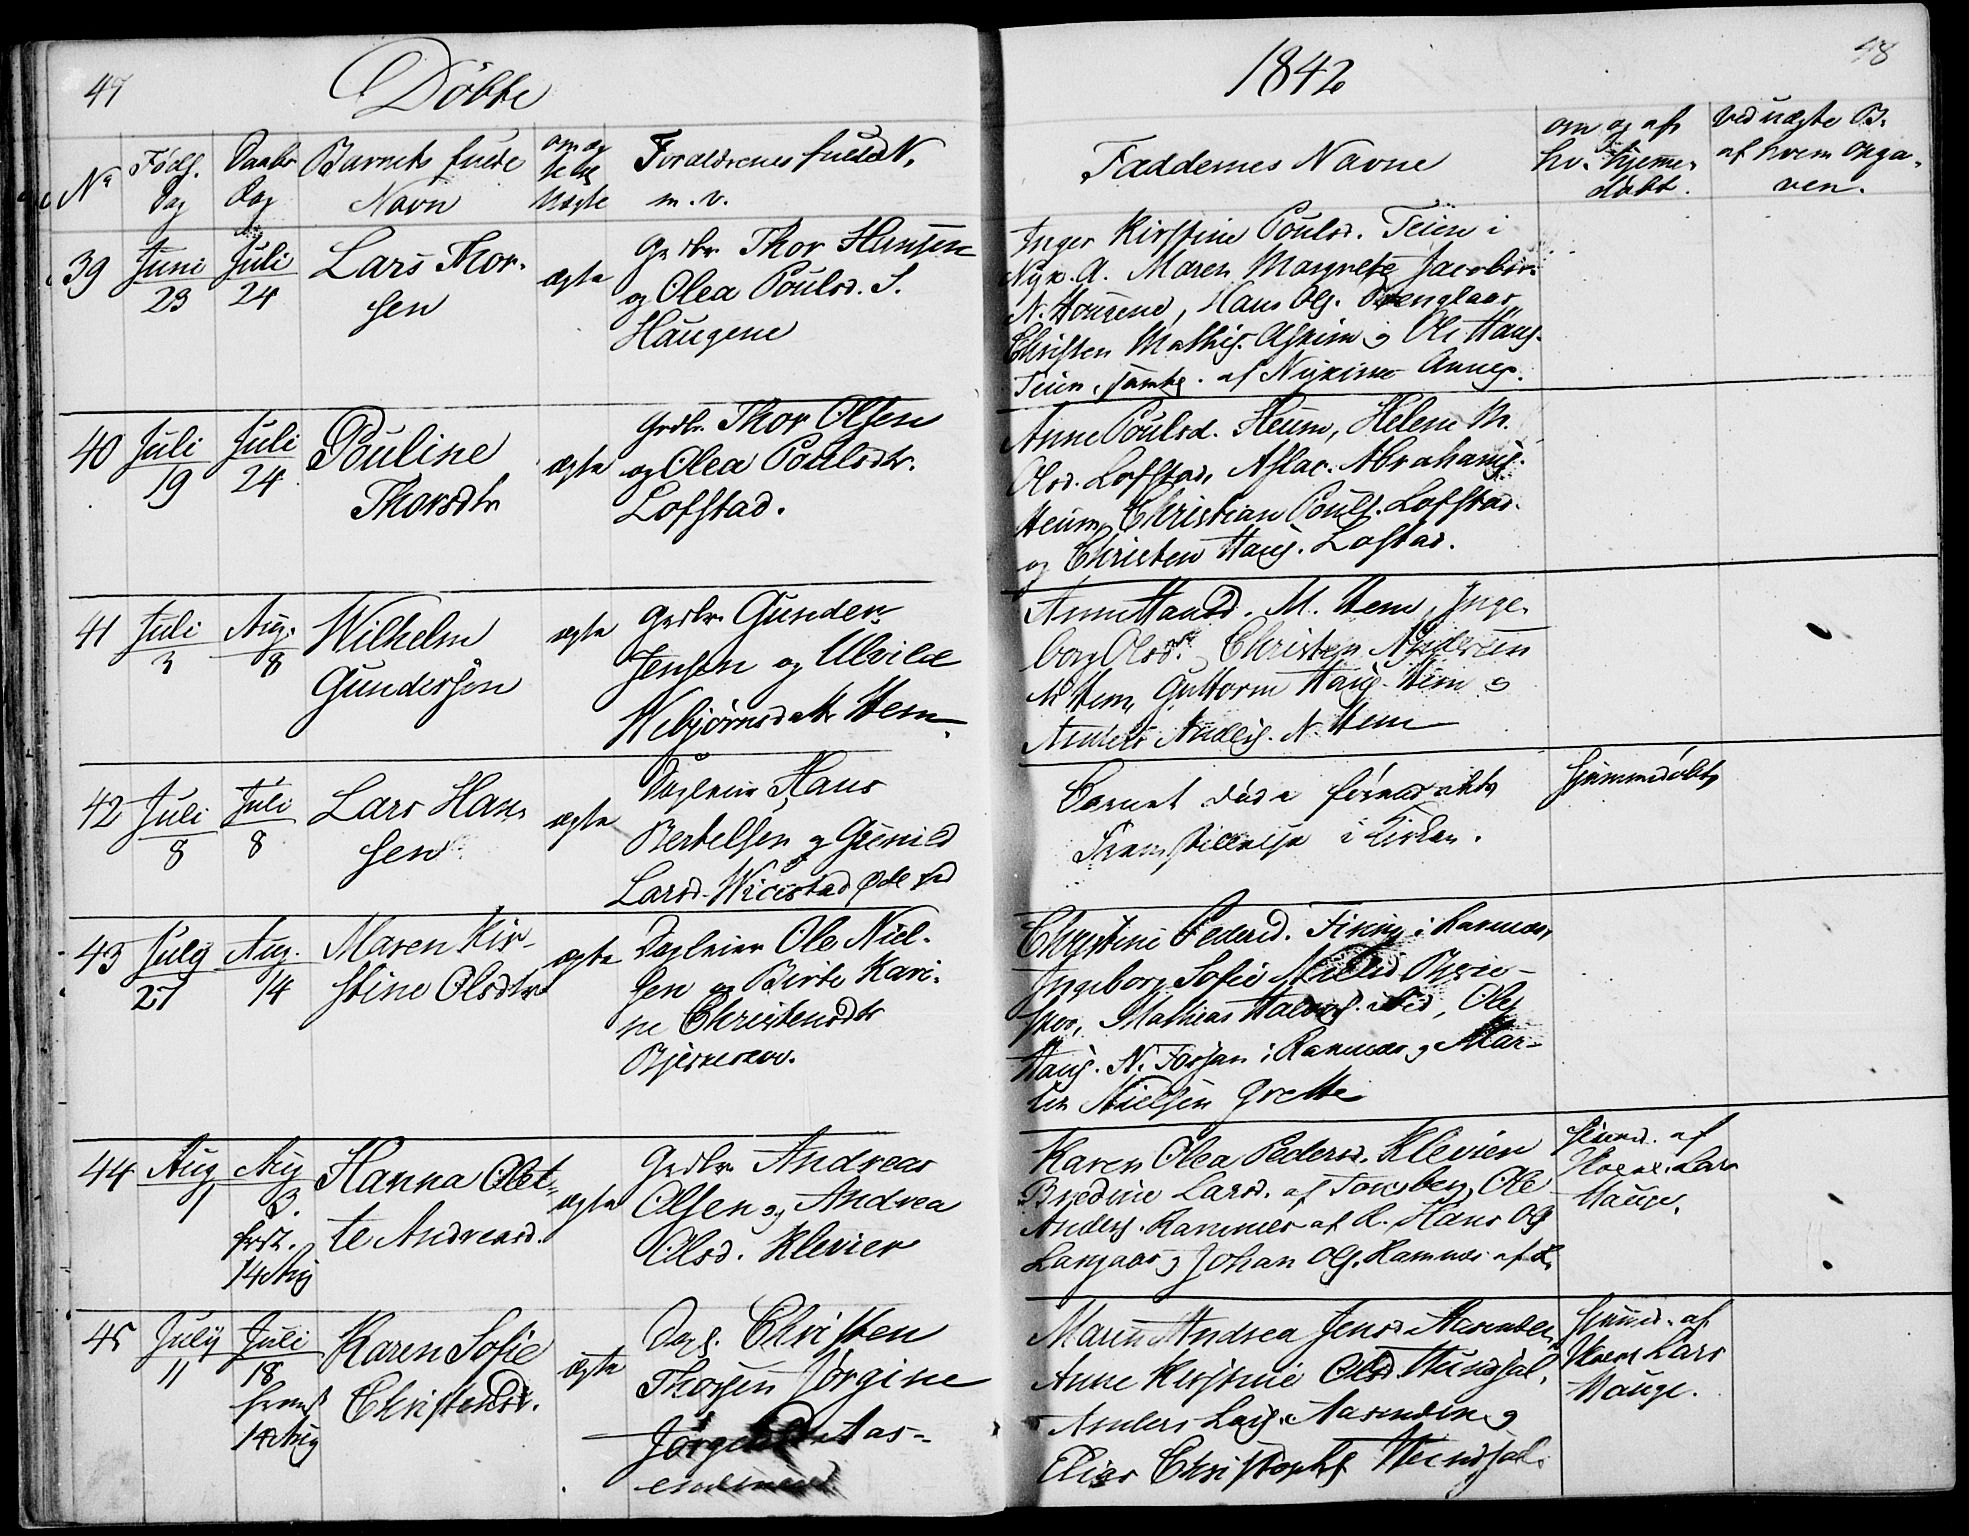 47
Döbte
1842
48
No
Föds. Dag
Daabs Dag
Barnets fulde Navn
om ægte
uægte
Forældrenes fulde N.
m. v.
Faddernes Navne
om og af
hv. hjemme-
döbt.
Ved uægte B.
af hvem opga-
ven.
39
Juni 23
Juli 24
Lars Thor-
sen
ægte
Grdbr. Thor Hansen
og Olea Poulsd. S.
Haugene
Inger Kirstine Poulsd. Teien i
Nyk. A. Maren Margrete Jacobsd.
N. Hougene, Hans Ols.
Christen Mathis. Askim og Ole Hans.
Teien, samtl. af Nykirke Annex.
40
Juli 19
Juli 24
Pouline
Thorsdtr
ægte
Grdbr. Thor Olsen
og Olea Poulsdtr.
Lofstad.
Anne Poulsd. Heum, Helene M.
Olsd. Lofstad, Aslac Abrahams.
Heum, Christian Pouls. Lofstad.
og Christen Hans. Lofstad.
41
Juli 3
Aug. 8
Wilhelm
Gundersen
ægte
Grdbr. Gunder
Jensen og Ulvilde
Webjörnsdatr Hem
Anne Hansd. M. Hem, Inge-
borg Olsd. Christen Andersen
M Hem, Guttorm Hans. Hem og
Anders Anders. N. Hem
42
Juli 8
Juli 8
Lars Han-
sen
ægte
Dagleier Hans
Bertelsen og Gunild
Larsd.
Barnet döde för
Fremstillelse i Kirken.
hjemmedöbt
43
July 27
Aug. 14
Maren Kir-
stine Olsdtr
ægte
Dagleier Ole Niel-
sen og Birte Kari-
ne Christensdtr
Bjerkeskov.
Christine Pedersd. i Ramnæs
Ingeborg Sofie
Mathias
Hans. N. i Ramnæs og Mar-
tin Nielsen Grette
44
Aug 1
Aug 3.
frst.
14 Aug
Hanna Olet-
te Andreasd.
ægte
Grdbr. Andreas
Olsen og Andrea
Olsd. Klevier
Karen Olea Pedersd. Klevien
Bredine Larsd. af Tønsberg, Ole
Anders. Ramnæs af R. Hans Ols
Langaar og Johan Ols. Ramnæs af R.
hjemd. af
Skoel. Lars
Hauge.
45
July 11
Juli 18
fremst
14 Aug
Karen Sofie
Christensdr.
ægte
Dagl. Christen
Thorsen Jörgine
Jörgensd. Aas-
Maren Andrea Jensd.
Anne Kirstine Olsd.
Anders Lars. og
Elias Christophs
hjemd. af
Skoel Lars
Hauge.